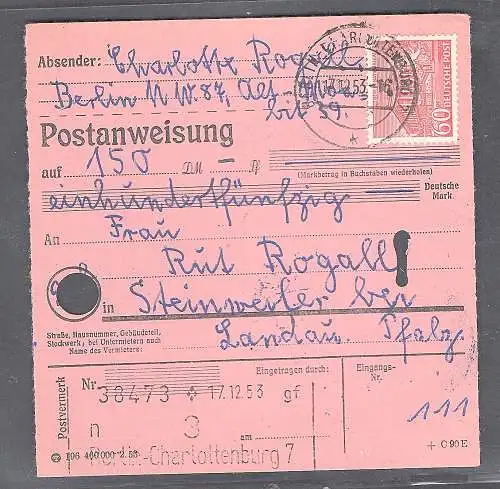 Absender: Charlotte Rogall
Berlin N.W. 87, Alt-Moabit 39.
17.12.53
60
DEUTSCHE POST
Postanweisung
auf 150 DM — Pf
(Markbetrag in Buchstaben wiederholen)
einhundertfünfzig
Deutsche Mark.
An Frau
Rut Rogall
in Steinweiler bei
Landau. Pfalz.
Straße, Hausnummer, Gebäudeteil,
Stockwerk; bei Untermietern auch
Name des Vermieters:
Postvermerk
Nr
Eingetragen durch:
Eingangs-
Nr.
38473 * 17.12.53 gf
n 3 am
111
Berlin-Charlottenburg 7
106 400 000 2.53
+ C 90 E